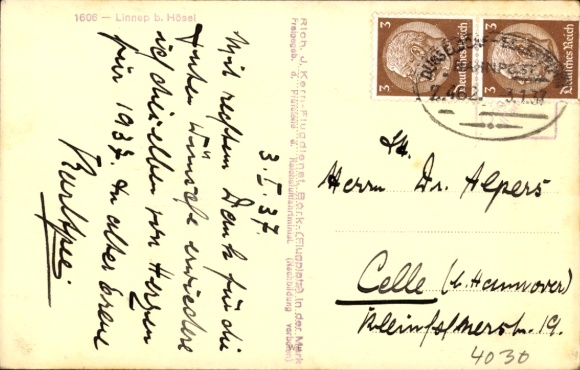 1606 — Linnep b. Hösel
3. I. 37.
Mit rechtem Dank für die
guten Wünsche erwidere
ich dieselben von Herzen
für 1937. In alter Treue
Rich. J. Kern, Flugdienst, Bork, (Flugplatz) in der Mark
Freigegeb. d. Reichsluftfahrtminist. (Nachbildung verboten)
3 Deutsches Reich
3 Deutsches Reich
BAHNPOST
Z.462 3.1.37
Herrn Dr. Alpers
Celle (b. Hannover)
19.
4030